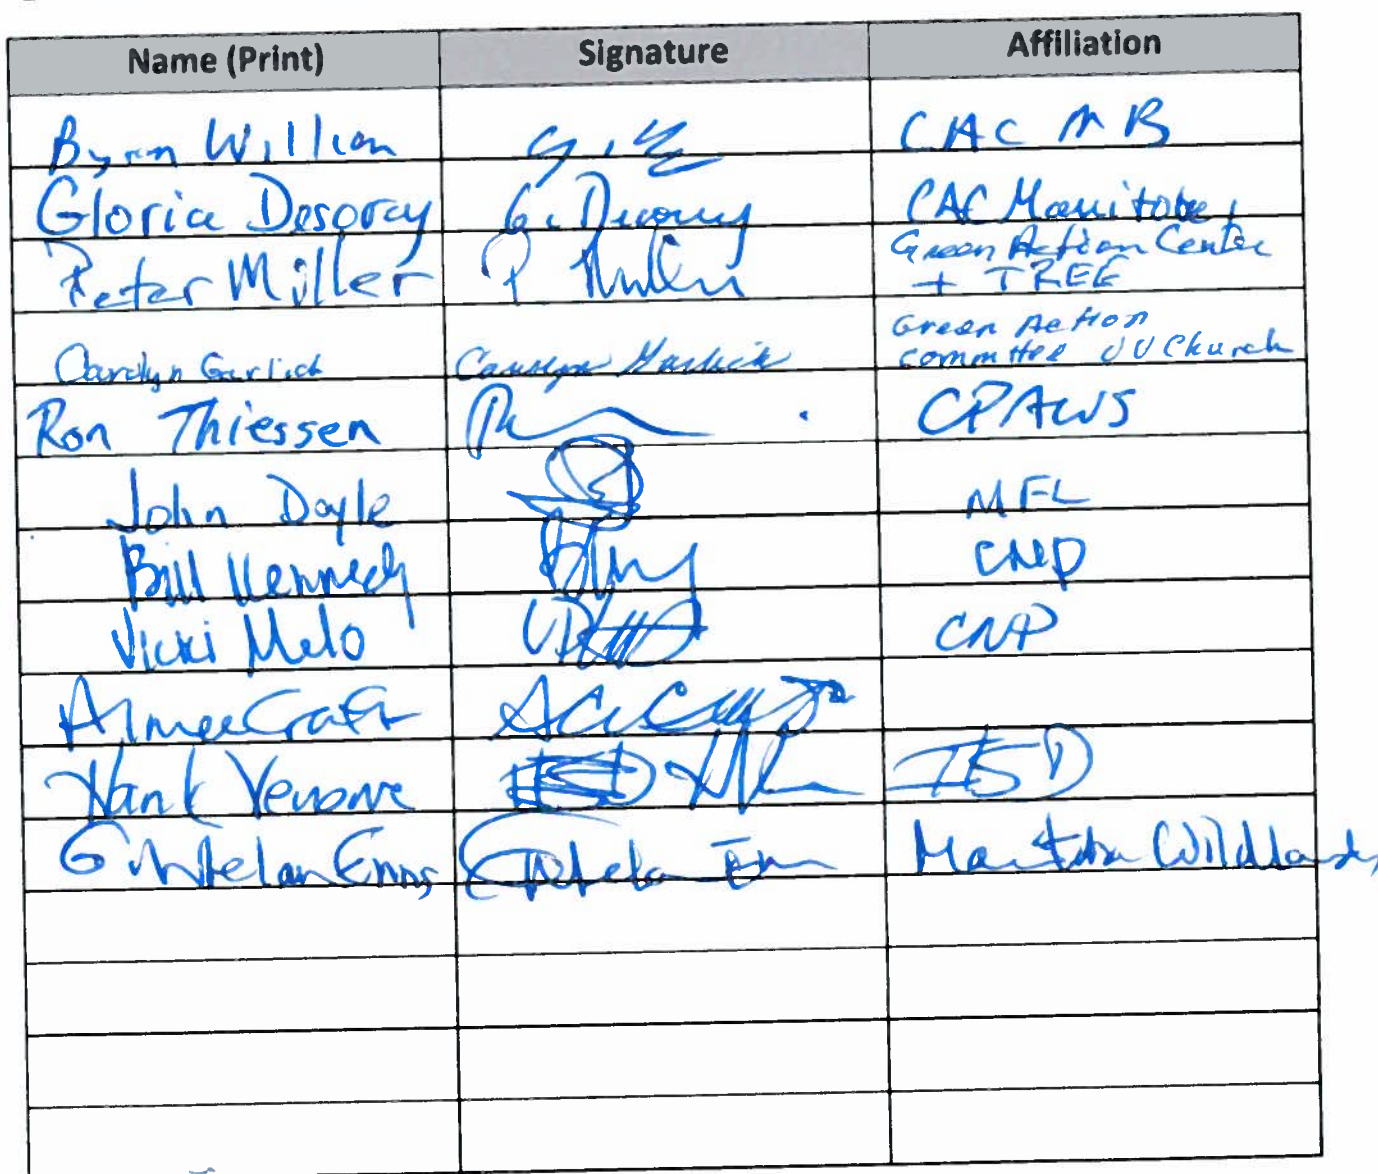 Name (Print) Signature Affiliation
Byron William CAC MB
Gloria Desorcy G. Desorcy CAC Manitoba
Peter Miller P Miller Green Action Center
+ TREE
Green Action
Carolyn Garlich Carolyn Garlich committee UU Church
Ron Thiessen CPAWS
John Doyle MFL
Bill Kennedy CNP
Vicki Melo CNP
Aimee Craft
Hank Venema IISD
Enns Manitoba Wildlands